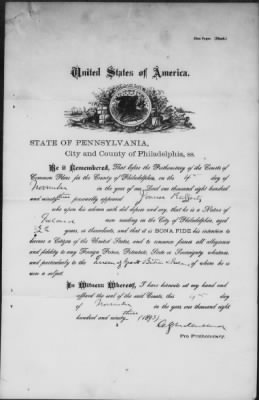 United States of America.
STATE OF PENNSYLVANIA,
City and County of Philadelphia, ss.
Be it Remembered, That before the Prothonotary of the Courts of
Common Pleas for the County of Philadelphia, on the 4th day of
November in the year of our Lord one thousand eight hundred
and ninety three personally appeared James Rafferty
who upon his solemn oath did depose and say, that he is a Native of
Ireland now residing in the City of Philadelphia, aged
years, or thereabouts, and that it is BONA FIDE his intention to
become a Citizen of the United States, and to renounce forever all allegiance
and fidelity to any Foreign Prince, Potentate, State or Sovereignty whatever,
and particularly to the Queen of Great Britain & Ireland, of whom he is
now a subject.
In Witness Whereof, I have hereunto set my hand and
affixed the seal of the said Courts, this 4th day
of November in the year one thousand eight
hundred and ninety three (1893)
Pro Prothonotary.